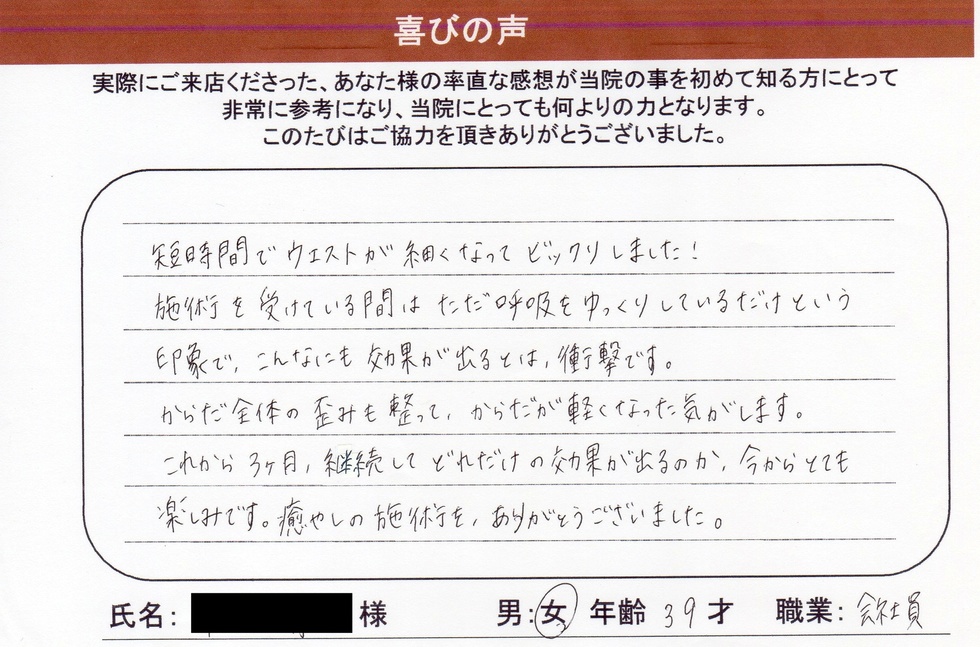 喜びの声
実際にご来店くださった、あなた様の率直な感想が当院の事を初めて知る方にとって
非常に参考になり、当院にとっても何よりの力となります。
このたびはご協力を頂きありがとうございました。
短時間でウエストが細くなってビックリしました！
施術を受けている間はただ呼吸をゆっくりしているだけという
印象で、こんなにも効果が出るとは、衝撃です。
からだ全体の歪みも整って、からだが軽くなった気がします。
これから3ヶ月、継続してどれだけの効果が出るのか、今からとても
楽しみです。癒やしの施術を、ありがとうございました。
氏名： 様 男：女 年齢 39 才 職業：会社員